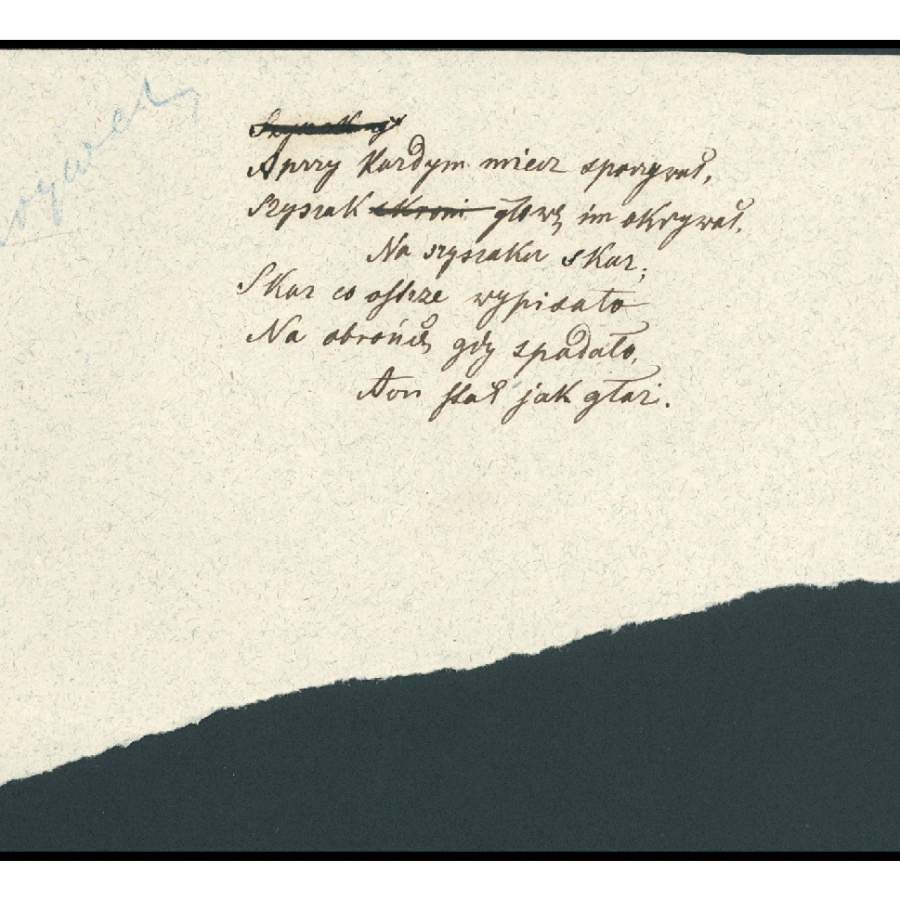 A przy Każdym miecz spoczywał,
Szyszak skroni głowę im okrywał.
Na szyszaku skaz;
Skaz co ostrze wypisało
Na obrońcę gdy spadało,
A on stał jak głaz.